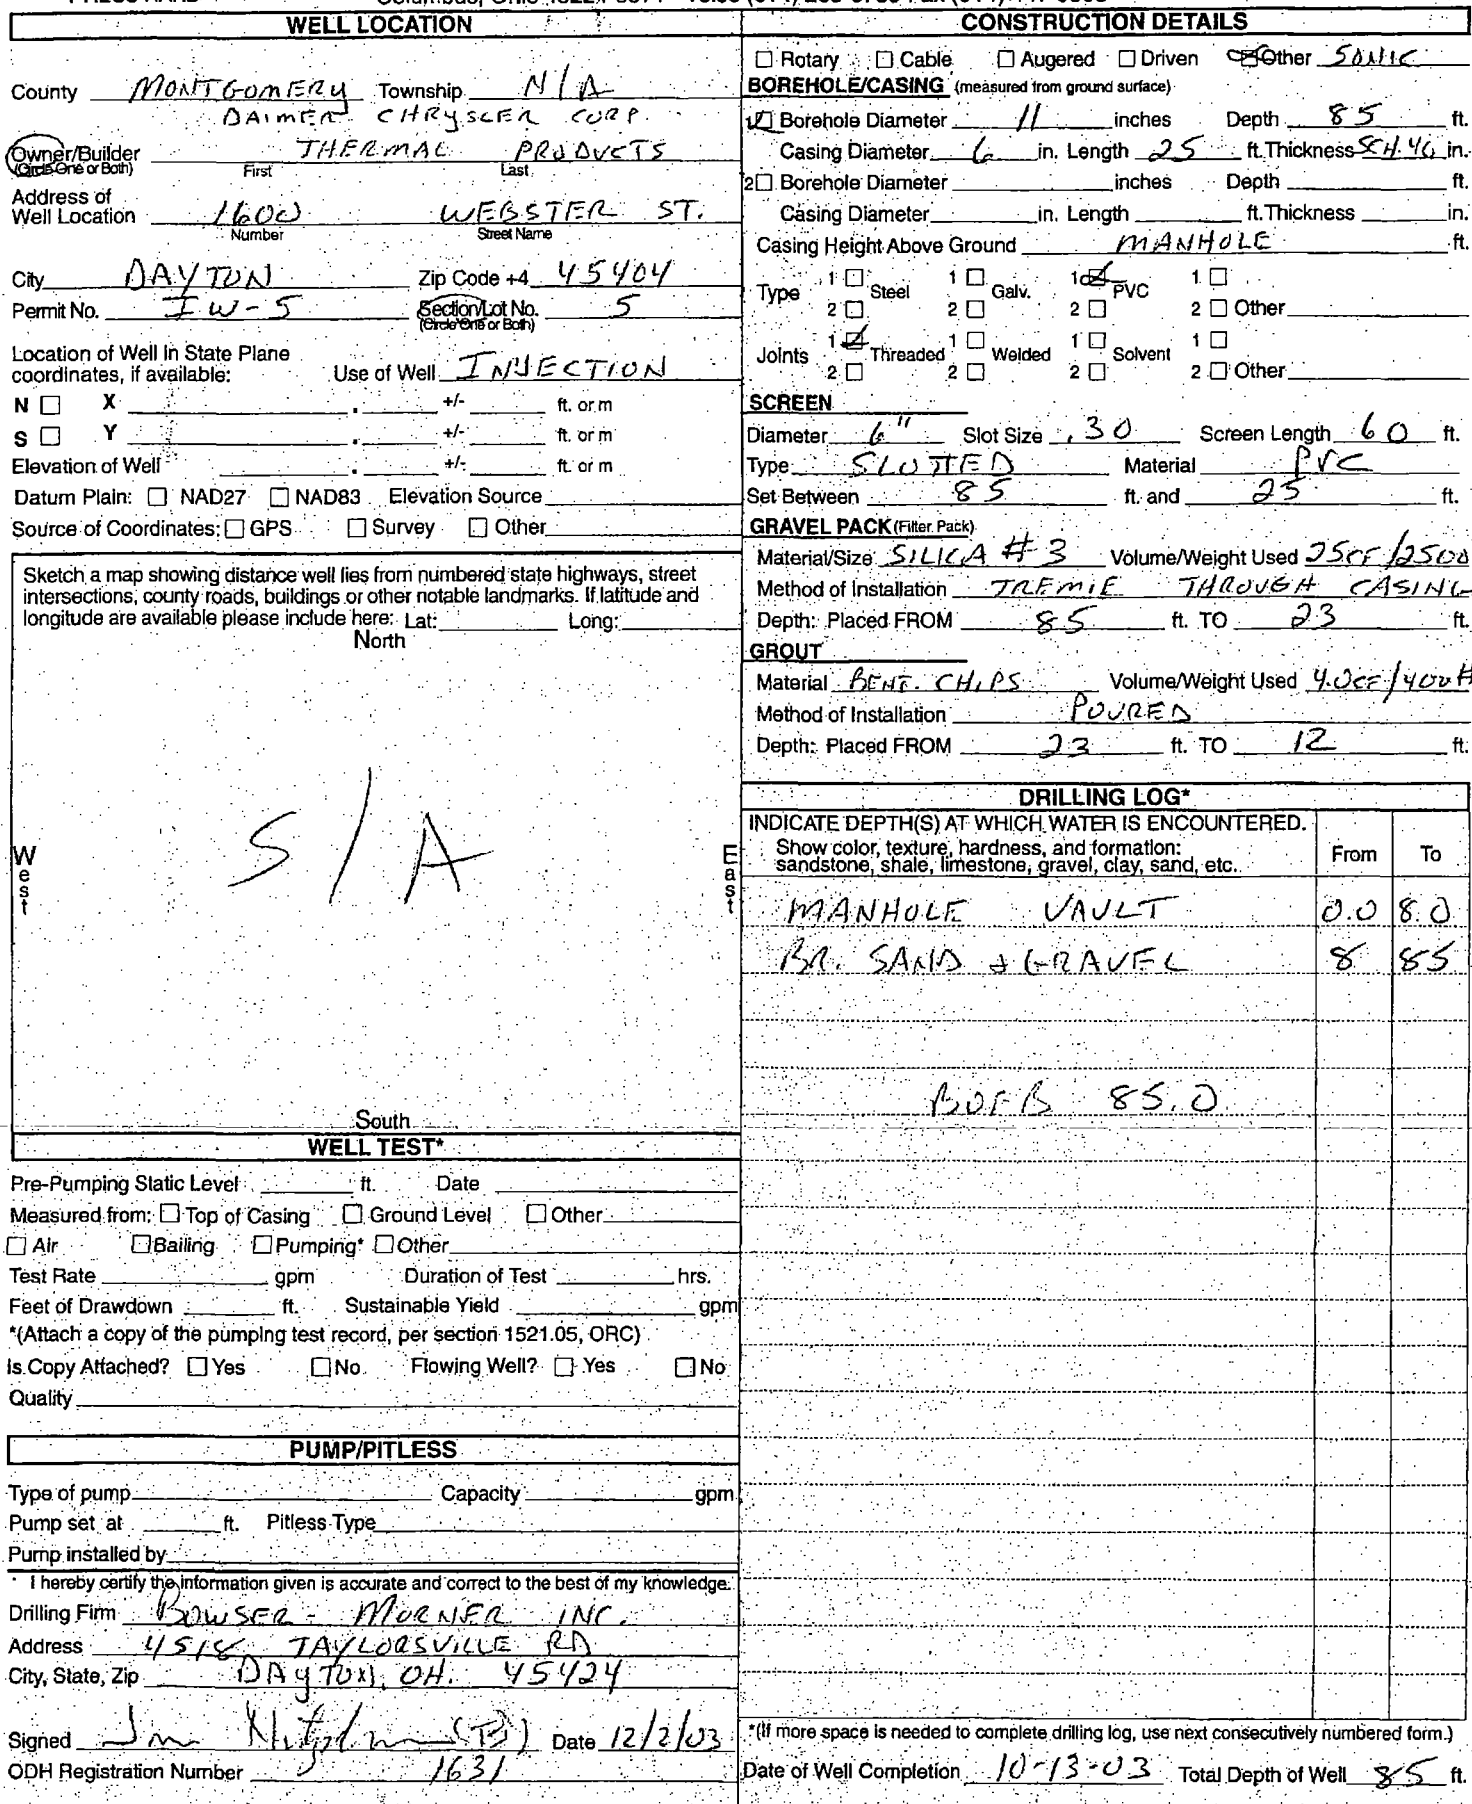 WELL LOCATION
County MONTGOMERY Township N/A
DAIMER CHRYSLER CORP.
Owner/Builder THERMAL PRODUCTS
(Circle One or Both) First Last
Address of
Well Location 1600 WEBSTER ST.
Number Street Name
City DAYTON Zip Code +4 45404
Permit No. IW-5 Section/Lot No. 5
(Circle One or Both)
Location of Well in State Plane
coordinates, if available: Use of Well INJECTION
N ☐ X . +/- ft. or m
S ☐ Y . +/- ft. or m
Elevation of Well . +/- ft. or m
Datum Plain: ☐ NAD27 ☐ NAD83 Elevation Source
Source of Coordinates: ☐ GPS ☐ Survey ☐ Other
Sketch a map showing distance well lies from numbered state highways, street
intersections, county roads, buildings or other notable landmarks. If latitude and
longitude are available please include here: Lat: Long:
North
West
S/A
East
South
WELL TEST*
Pre-Pumping Static Level ft. Date
Measured from: ☐ Top of Casing ☐ Ground Level ☐ Other
☐ Air ☐ Bailing ☐ Pumping* ☐ Other
Test Rate gpm Duration of Test hrs.
Feet of Drawdown ft. Sustainable Yield gpm
*(Attach a copy of the pumping test record, per section 1521.05, ORC)
Is Copy Attached? ☐ Yes ☐ No Flowing Well? ☐ Yes ☐ No
Quality
PUMP/PITLESS
Type of pump Capacity gpm
Pump set at ft. Pitless Type
Pump installed by
I hereby certify the information given is accurate and correct to the best of my knowledge.
Drilling Firm BOWSER-MORNER INC.
Address 4518 TAYLORSVILLE RD
City, State, Zip DAYTON, OH. 45424
Signed Date 12/2/03
ODH Registration Number 1631
CONSTRUCTION DETAILS
☐ Rotary ☐ Cable ☐ Augered ☐ Driven ☒ Other SONIC
BOREHOLE/CASING (measured from ground surface)
1 ☑ Borehole Diameter 11 inches Depth 85 ft.
Casing Diameter 6 in. Length 25 ft. Thickness SCH.40 in.
2 ☐ Borehole Diameter inches Depth ft.
Casing Diameter in. Length ft. Thickness in.
Casing Height Above Ground MANHOLE ft.
1 ☐ 1 ☐ 1 ☑ 1 ☐
Type Steel Galv. PVC
2 ☐ 2 ☐ 2 ☐ 2 ☐ Other
1 ☑ 1 ☐ 1 ☐ 1 ☐
Joints Threaded Welded Solvent
2 ☐ 2 ☐ 2 ☐ 2 ☐ Other
SCREEN
Diameter 6" Slot Size .30 Screen Length 60 ft.
Type SLOTTED Material PVC
Set Between 85 ft. and 25 ft.
GRAVEL PACK (Filter Pack)
Material/Size SILICA #3 Volume/Weight Used 25CF/2500
Method of Installation TREMIE THROUGH CASING
Depth: Placed FROM 85 ft. TO 23 ft.
GROUT
Material BENT. CHIPS Volume/Weight Used 4.0CF/400#
Method of Installation POURED
Depth: Placed FROM 23 ft. TO 12 ft.
DRILLING LOG*
INDICATE DEPTH(S) AT WHICH WATER IS ENCOUNTERED.
Show color, texture, hardness, and formation:
sandstone, shale, limestone, gravel, clay, sand, etc. From To
MANHOLE VAULT 0.0 8.0
BR. SAND & GRAVEL 8 85
BOFB 85.0
*(If more space is needed to complete drilling log, use next consecutively numbered form.)
Date of Well Completion 10-13-03 Total Depth of Well 85 ft.